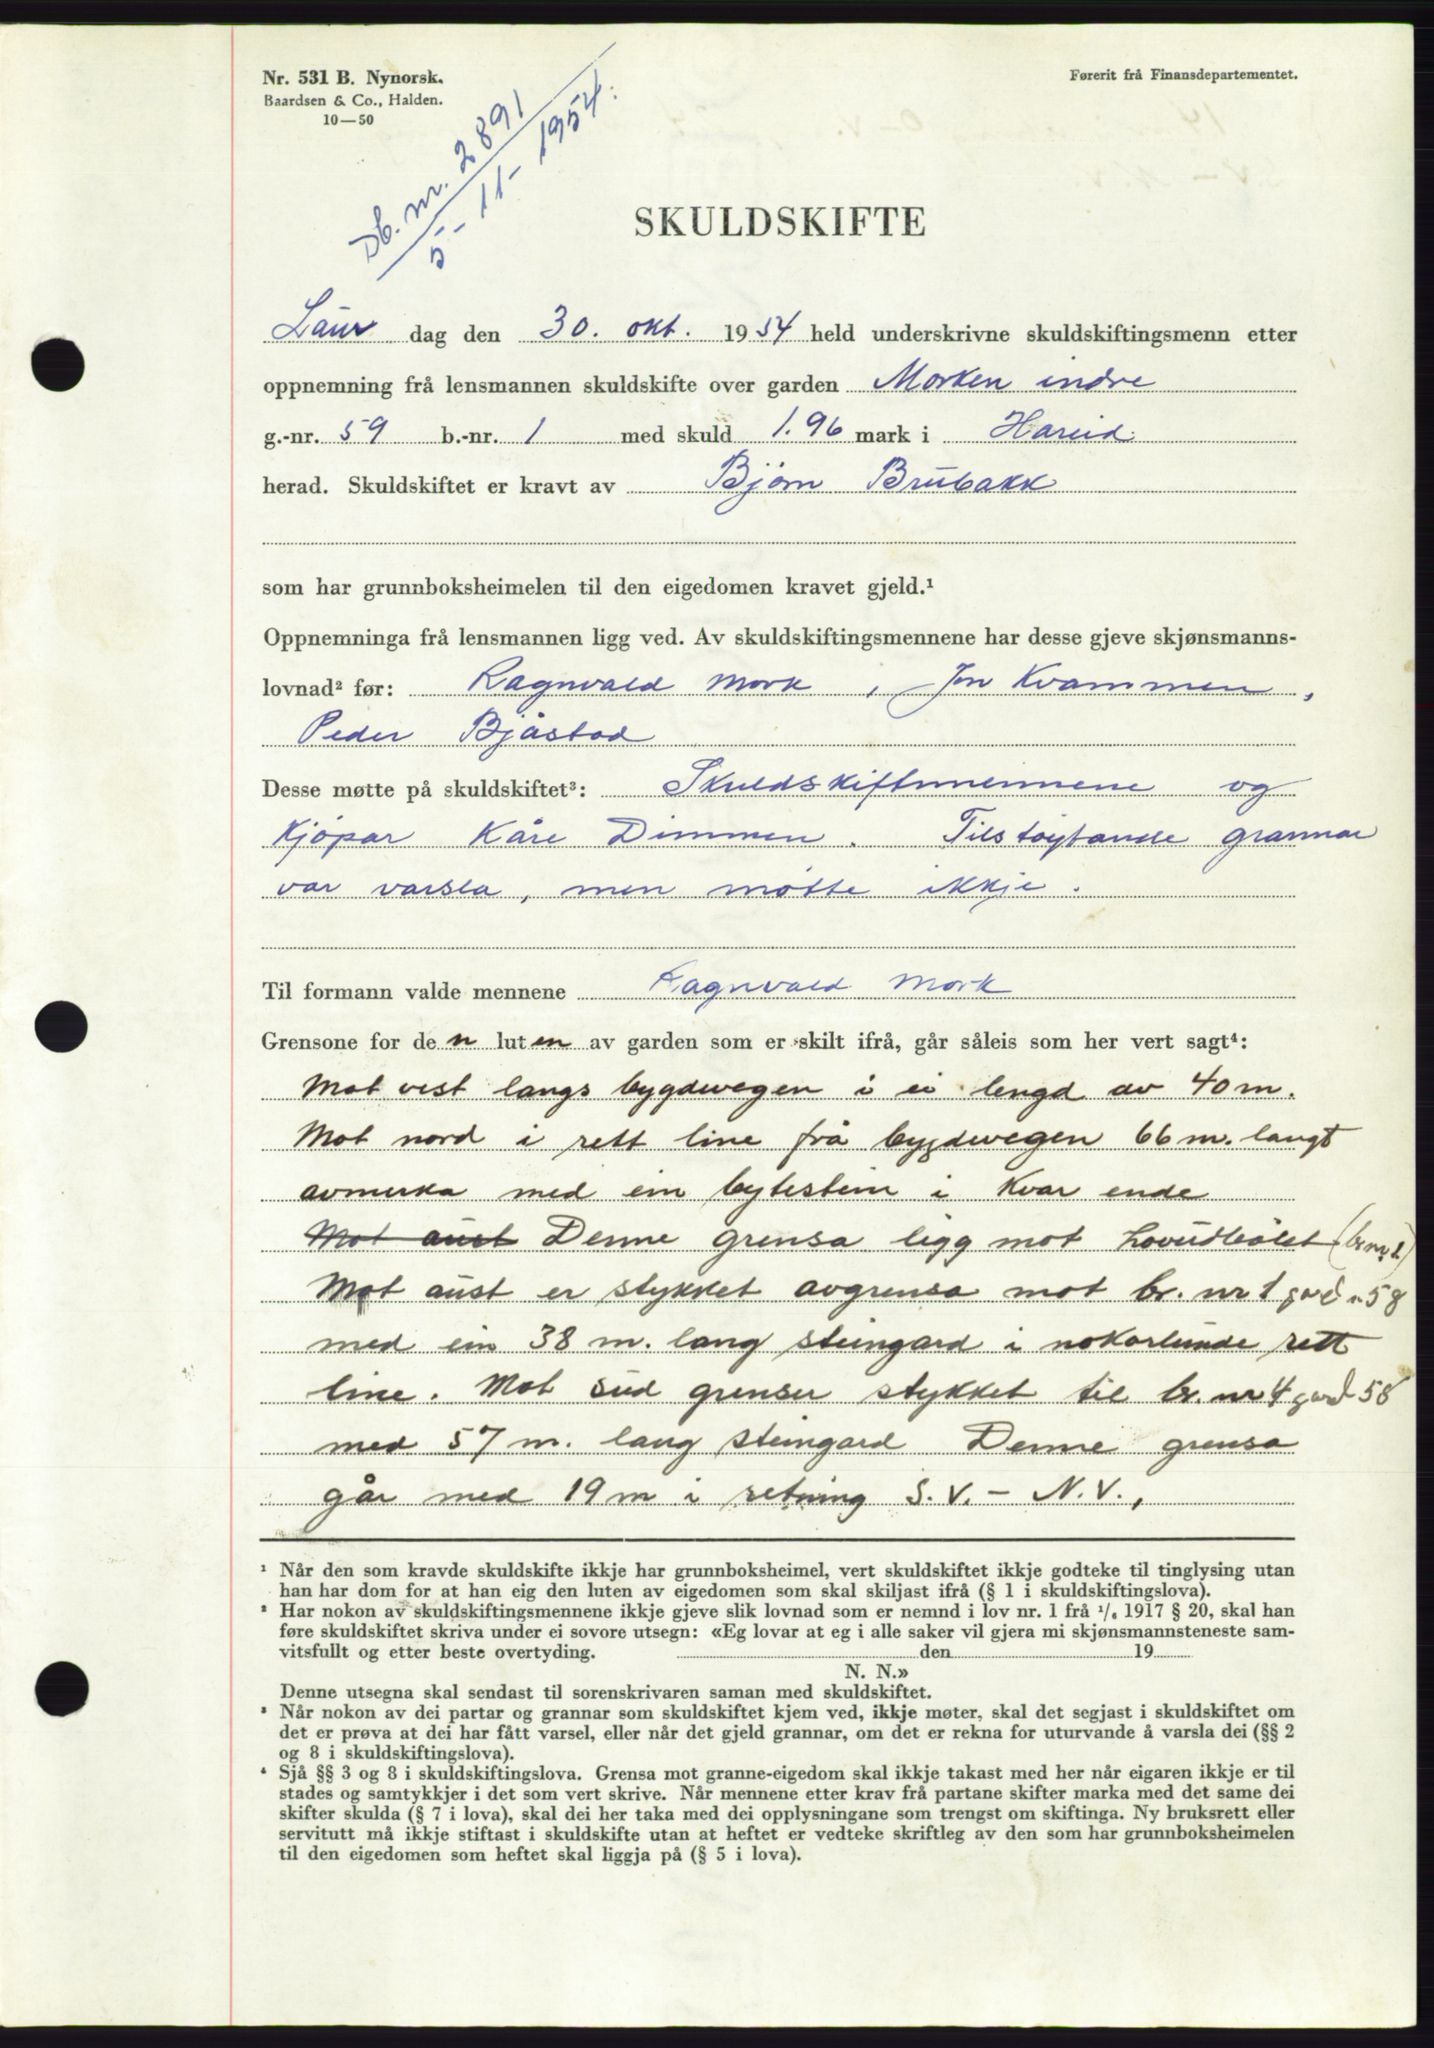 Nr. 531 B. Nynorsk.
Baardsen & Co., Halden.
10—50
Førerit frå Finansdepartementet.
Db. nr. 2891
5-11-1954.
SKULDSKIFTE
Laur dag den 30. okt. 1954 held underskrivne skuldskiftingsmenn etter
oppnemning frå lensmannen skuldskifte over garden Morken indre
g.-nr. 59 b.-nr. 1 med skuld 1.96 mark i Hareid
herad. Skuldskiftet er kravt av Bjørn Brubakk
som har grunnboksheimelen til den eigedomen kravet gjeld.¹
Oppnemninga frå lensmannen ligg ved. Av skuldskiftingsmennene har desse gjeve skjønsmanns-
lovnad² før: Ragnvald Mork, Jon Kvammen,
Peder Bjåstad
Desse møtte på skuldskiftet³: Skuldskiftnmennene og
kjøpar Kåre Dimmen. Tilstøytande grannar
var varsla, men møtte ikkje.
Til formann valde mennene Ragnvald Mork
Grensone for den luten av garden som er skilt ifrå, går såleis som her vert sagt⁴:
Mot vest langs bygdevegen i ei lengd av 40 m.
Mot nord i rett line frå bygdevegen 66 m. langt
avmerka med ein bytestein i kvar ende
Mot aust Denne grensa ligg mot hovudbølet (br.nr 1)
Mot aust er stykket avgrensa mot br. nr 1 gard n 58
med ein 38 m. lang steingard i nokorlunde rett
line. Mot sud grenser stykket til br. nr 4 gard 58
med 57 m. lang steingard Denne grensa
går med 19 m i retning S.V. - N.V.,
¹ Når den som kravde skuldskifte ikkje har grunnboksheimel, vert skuldskiftet ikkje godteke til tinglysing utan
han har dom for at han eig den luten av eigedomen som skal skiljast ifrå (§ 1 i skuldskiftingslova).
² Har nokon av skuldskiftingsmennene ikkje gjeve slik lovnad som er nemnd i lov nr. 1 frå ¹/₆ 1917 § 20, skal han
føre skuldskiftet skriva under ei sovore utsegn: «Eg lovar at eg i alle saker vil gjera mi skjønsmannsteneste sam-
vitsfullt og etter beste overtyding. den 19
N. N.»
Denne utsegna skal sendast til sorenskrivaren saman med skuldskiftet.
³ Når nokon av dei partar og grannar som skuldskiftet kjem ved, ikkje møter, skal det segjast i skuldskiftet om
det er prøva at dei har fått varsel, eller når det gjeld grannar, om det er rekna for uturvande å varsla dei (§§ 2
og 8 i skuldskiftingslova).
⁴ Sjå §§ 3 og 8 i skuldskiftingslova. Grensa mot granne-eigedom skal ikkje takast med her når eigaren ikkje er til
stades og samtykkjer i det som vert skrive. Når mennene etter krav frå partane skifter marka med det same dei
skifter skulda (§ 7 i lova), skal dei her taka med dei opplysningane som trengst om skiftinga. Ny bruksrett eller
servitutt må ikkje stiftast i skuldskifte utan at heftet er vedteke skriftleg av den som har grunnboksheimelen
til den eigedomen som heftet skal liggja på (§ 5 i lova).